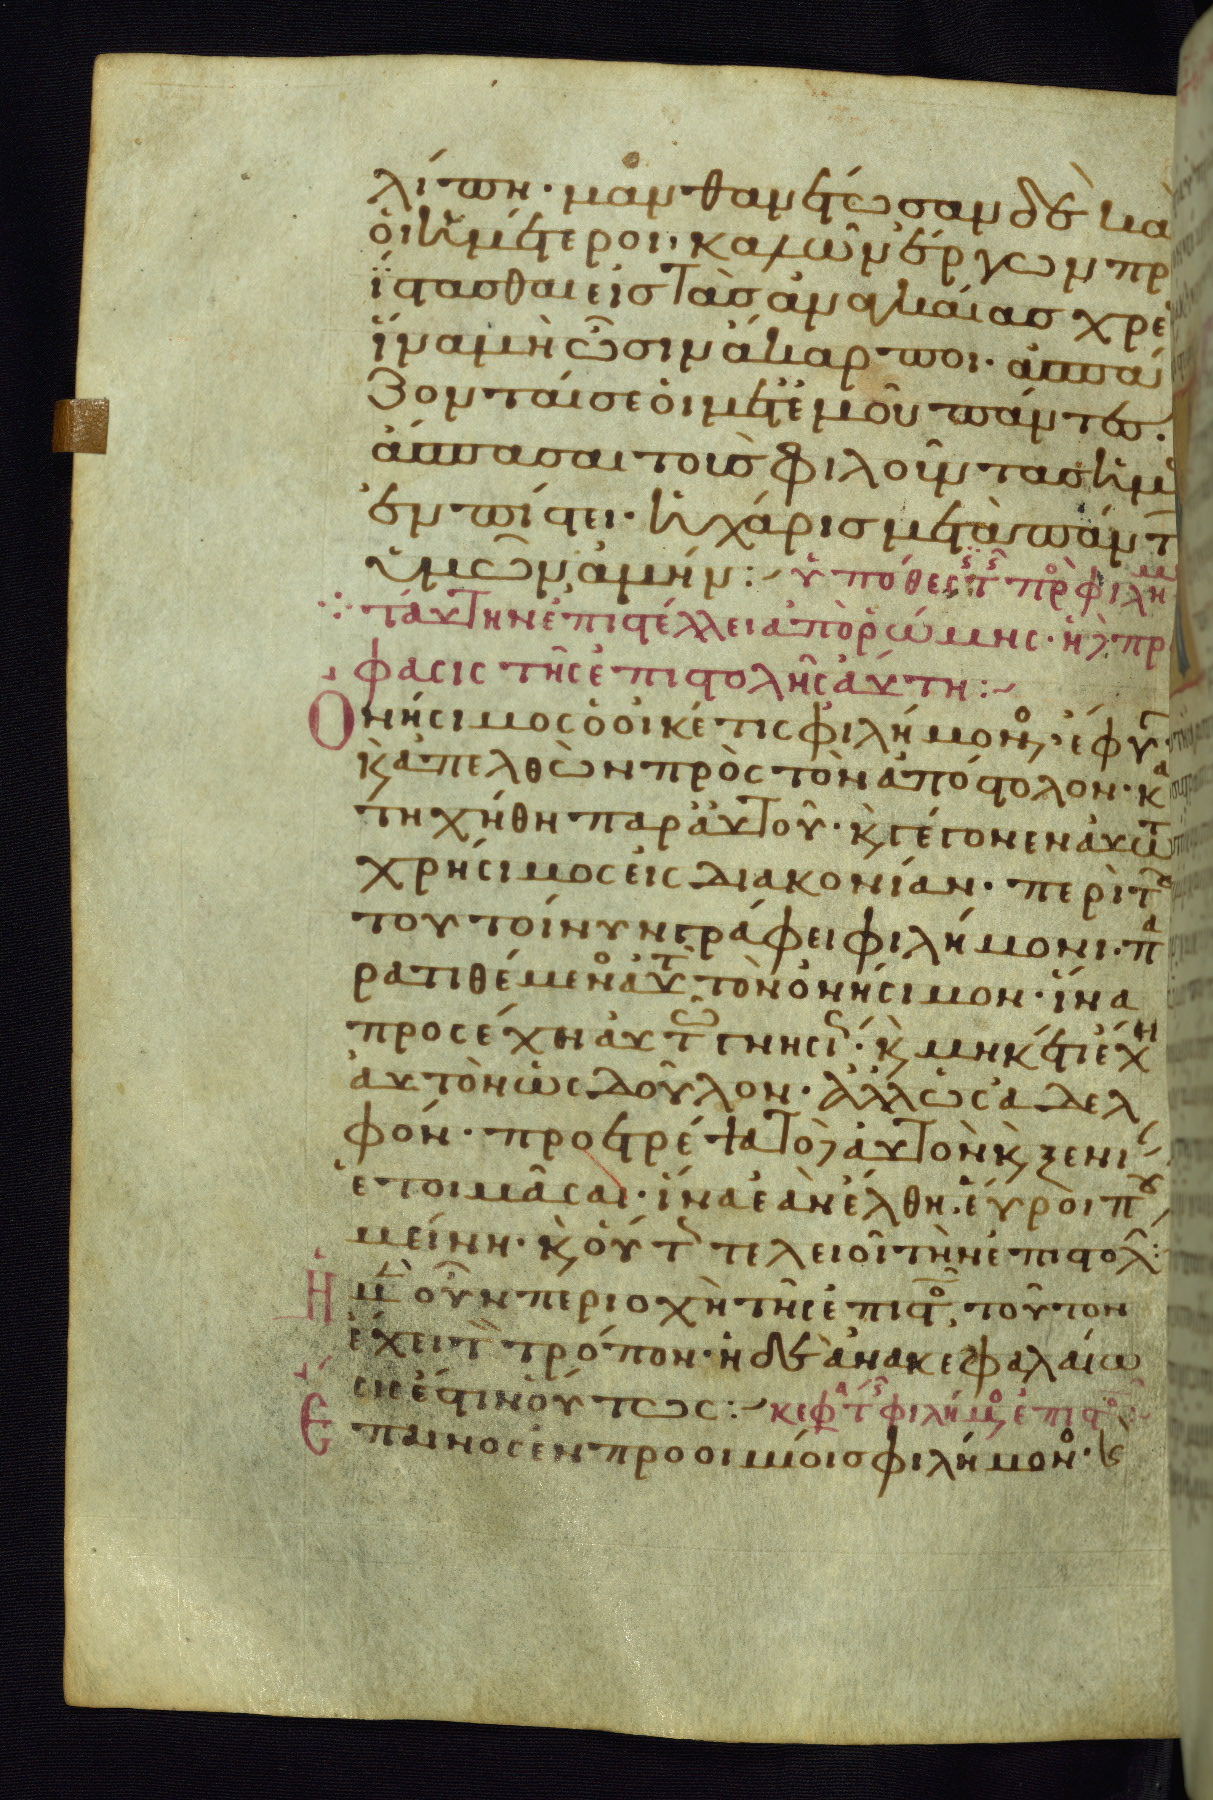 λίπη· μανθανέτωσαν δὲ κα
ὁι ἡμέτεροι, καλῶν ἔργων πρ
ΐστασθαι εἰς τὰσ ἀναγκαίασ χρε
ἵνα μὴ ὦσιν ἄκαρποι· ἀσπά
ζονταί σε ὁι μετ ἐμοῦ πάντες·
ἄσπασαι τοὺσ φιλοῦντασ ἡμ
ἐν πίστει· ἡ χάρισ μετὰ πάντ
ὑμῶν, ἀμήν:~ ὑπόθεσϊς τ πρ φιλημ
ταύτην ἐπιστέλλει ἀπὸ ῥώμης· ἡ δ πρ
φασις τῆς ἐπιστολῆς ἀύτη:~
Ονήσιμος ὁ οἰκέτις φιλήμον, ἔφυγ·
κ ἀπελθὼν πρὸς τὸν ἀπόστολον· κα
τηχήθη παρ ἀυτοῦ· κ γέγονεν ἀυτω
χρήσιμος εἰς διακονίαν· περὶ τ
του τοίνυν γράφει φιλήμονι· πα
ρατιθέμενο ἀυτ τὸν ὀνήσιμον· ἵνα
προσέχη ἀυτῶ γνησί· κ μηκέτι ἔχη
ἀυτὸν ὡς δοῦλον· ἀλλ ὡς ἀδελ
φόν· προτρέπεται δ ἀυτὸν κ ξενί
ἑτοιμᾶσαι· ἵνα ἐὰν ἔλθη, ἕυροι που
μείνη· κ ὅυτ τελειοῖ τὴν ἐπιστολ:
Η μ οὖν περιοχὴ τῆς ἐπιστο, τοῦτον
ἔχει τ τρόπον· ἡ δὲ ἀνακεφαλαίω
σις ἐστιν ὅυτως:~ κεφα τ φιλήμο ἐπιστο
Επαινος ἐν προοιμίοισ φιλήμον· κ